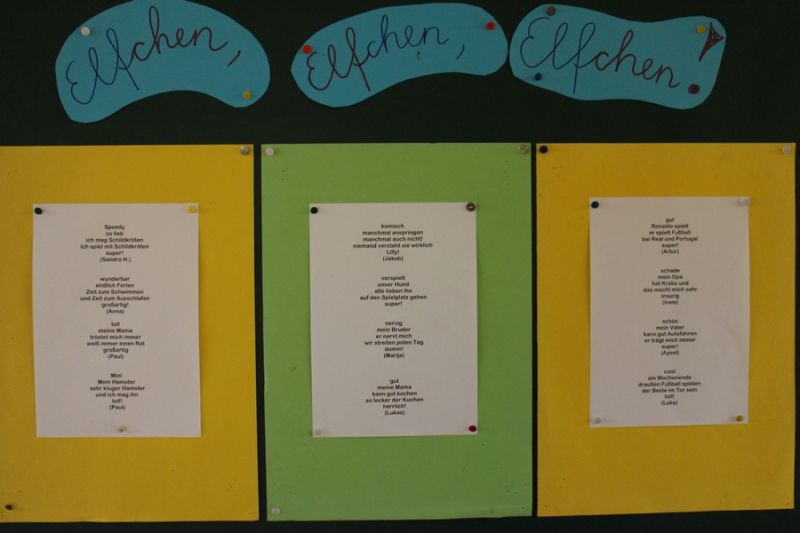 Elfchen,
Elfchen,
Elfchen
Speedy
so lieb
ich mag Schildkröten
ich spiel mit Schildkröten
super!
(Sandro H.)
wunderbar
endlich Ferien
Zeit zum Schwimmen
und Zeit zum Ausschlafen
großartig!
(Anna)
toll
meine Mama
tröstet mich immer
weiß immer einen Rat
großartig
(Paul)
Mini
Mein Hamster
sehr kluger Hamster
und ich mag ihn
toll!
(Paul)
komisch
manchmal anspringen
manchmal auch nicht!
niemand versteht sie wirklich
Lilly!
(Jakob)
verspielt
unser Hund
alle lieben ihn
auf den Spielplatz gehen
super!
nervig
mein Bruder
er nervt mich
wir streiten jeden Tag
dumm!
(Marija)
gut
meine Mama
kann gut kochen
so lecker der Kuchen
herrlich!
(Lukas)
gut
Ronaldo spielt
er spielt Fußball
bei Real und Portugal
super!
(Artur)
schade
mein Opa
hat Krebs und
das macht mich sehr
traurig
(Irem)
schön
mein Vater
kann gut Autofahren
er trägt mich immer
super!
(Aysel)
cool
am Wochenende
draußen Fußball spielen
der Beste im Tor sein
toll!
(Luka)